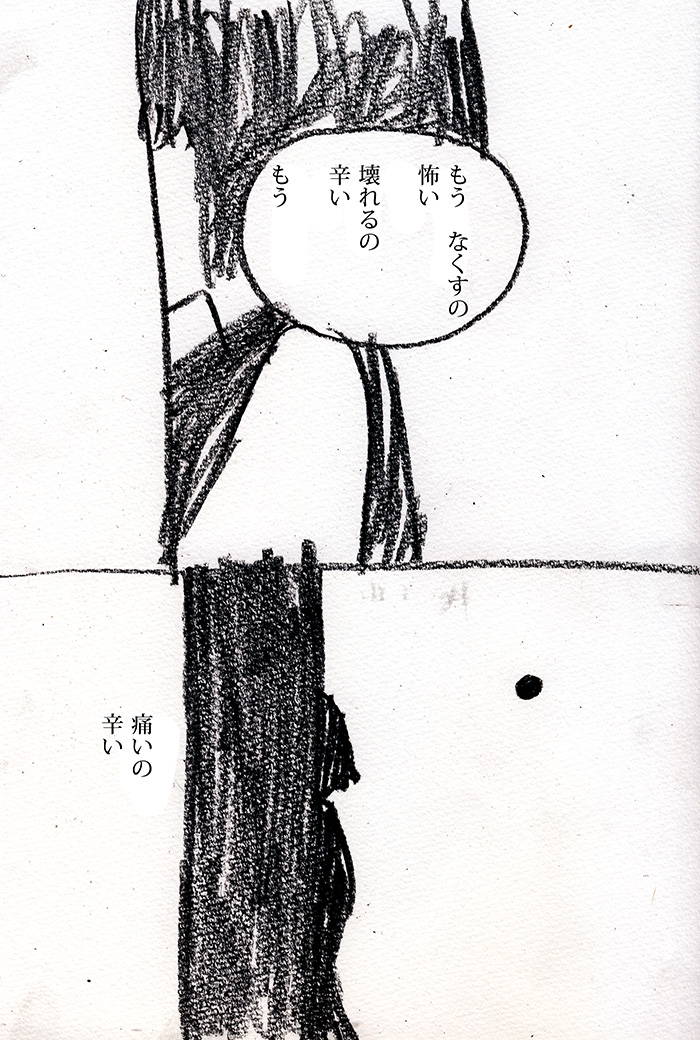 もう なくすの
怖い
壊れるの
辛い
もう
痛いの
辛い